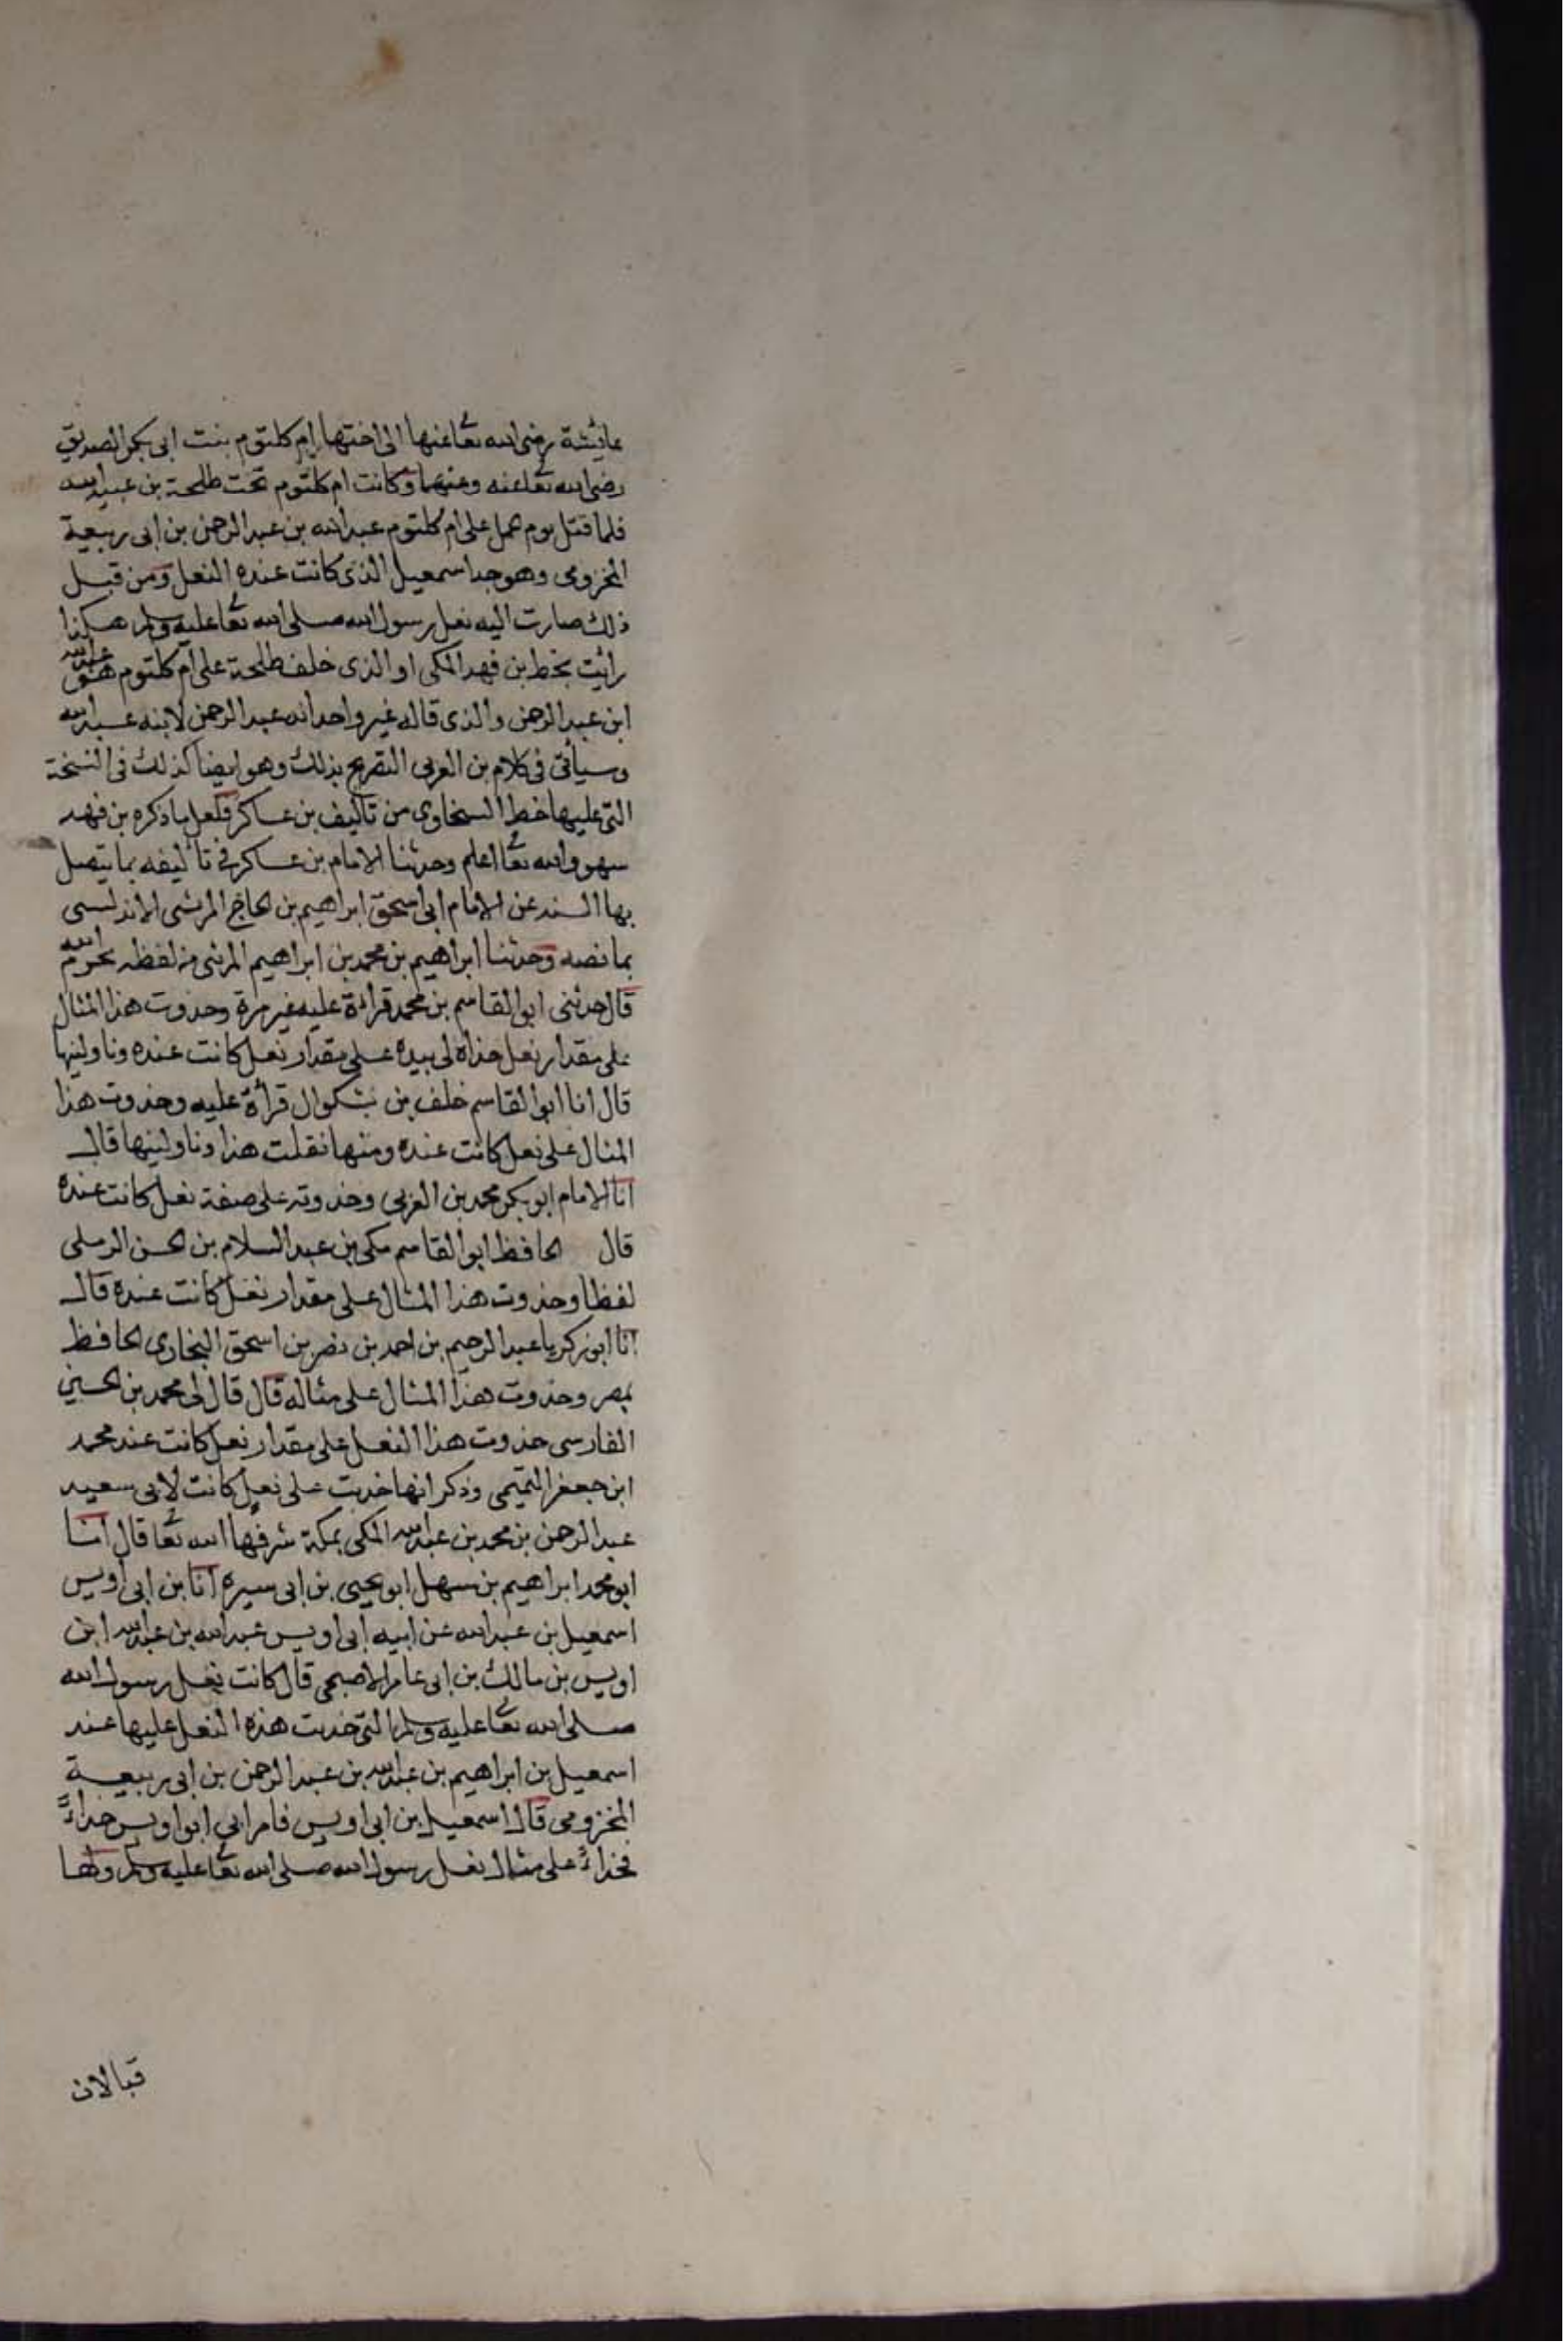 عائشة رضى الله تعا عنها الى اختها ام كلتوم بنت ابى بكر الصديق
رضى الله تعا عنه وعنهما وكانت ام كلتوم تحت طلحة بن عبيد الله
فلما قتل يوم حمل على ام كلتوم عبد الله بن عبد الرحمن بن ابى ربيعة
المخزومى وهو جد اسمعيل الذى كانت عنده النعل ومن قبل
ذلك صارت اليه نعل رسول الله صلى الله تعا عليه وسلم هكذا
رائيت بخط بن فهد المكى او الذى خلف طلحة على ام كلتوم هو عبد الله
ابن عبد الرحمن والذى قاله غير واحد انه عبد الرحمن لا ابنه عبد الله
وسيأتى فى كلام بن العربى التصريح بذلك وهو ايضا كذلك فى النسخة
التى عليها خط السخاوى من تاليف بن عساكر فلعل ما ذكره بن فهد
سهو والله تعا اعلم وحدثنا الامام بن عساكر فى تأليفه بما يتصل
بها السند عن الامام ابى اسحق ابراهيم بن الحاج المرشى الاندلسى
بما نصه وحدثنا ابراهيم بن محمد بن ابراهيم المرشى من لفظه بحرم الله
قال حدثنى ابو القاسم بن محمد قراءة عليه غير مرة وحذوت هذا المثال
على مقدار نعل حذاه لى بيده على مقدار نعل كانت عنده وناولنيها
قال انا ابو القاسم خلف بن بشكوال قرأة عليه وحذوت هذا
المثال على نعل كانت عنده ومنها نقلت هذا وناولنيها قال
انا الامام ابو بكر محمد بن العربى وحذوته على صفة نعل كانت عنده
قال الحافظ ابو القاسم مكى بن عبد السلام بن الحسن الرملى
لفظا وحذوت هذا المثال على مقدار نعل كانت عنده قال
انا ابو زكريا عبد الرحيم بن احمد بن نصر بن اسحق البخارى الحافظ
بمصر وحذوت هذا المثال على مثاله قال قال لى محمد بن الحسين
الفارسى حذوت هذا النعل على مقدار نعل كانت عند محمد
ابن جعفر التميمى وذكر انها حذيت على نعل كانت لابى سعيد
عبد الرحمن بن محمد بن عبد الله المكى بمكة شرفها الله تعا قال انا
ابو محمد ابراهيم بن سهل ابو يحيى بن ابى سيره انا بن ابى اويس
اسمعيل بن عبد الله عن ابيه ابى اويس عبد الله بن عبد الله ابن
اويس بن مالك بن ابى عامر الاصبحى قال كانت نعل رسول الله
صلى الله تعا عليه وسلم التى حذيت هذه النعل عليها عند
اسمعيل بن ابراهيم بن عبد الله بن عبد الرحمن بن ابى ربيعة
المخزومى قال اسمعيل بن ابى اويس فامر ابى ابو اويس حذاءً
فحذاء على مثال نعل رسول الله صلى الله تعا عليه وسلم ولها
قبالان